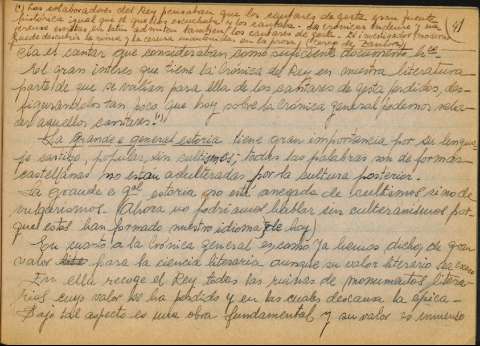 (*) Los colaboradores del Rey pensaban que los cantares de gesta gran fuente
histórica igual que el que los escuchaba y los cantaba. Las crónicas
versos en latín admiten también los cantares de gesta. El investigador moderno
puede descubrir la versión asonantada en la prosa (Cerco de Zamora)
41
el cantar que consideraban como suficiente documento hco
El gran interés que tiene la Crónica del Rey en nuestra literatura
parte de que se valían para ella de los cantares de gesta perdidos, des-
figurándolos tan poco que hoy sobre la Crónica general podemos reha-
cer aquellos cantares. (*)
La Grande e general estoria tiene gran importancia por su lengua-
je castizo, popular, sin cultismos; todas las palabras son de formas
castellanas no estan adulteradas por la cultura posterior.
La grande e gral estoria no era anegada de cultismos si no de
vulgarismos. (Ahora no podríamos hablar sin culteranismos por-
que estos han formado nuestro idioma de hoy)
En cuanto a la Crónica general es como ya hemos dicho, de gran
valor para la ciencia literaria aunque su valor literario sea
En ella recoge el Rey todas las ruinas de monumentos litera-
rios cuyo valor se ha perdido y en las cuales descansa la épica.
Bajo tal aspecto es una obra fundamental y su valor es inmenso